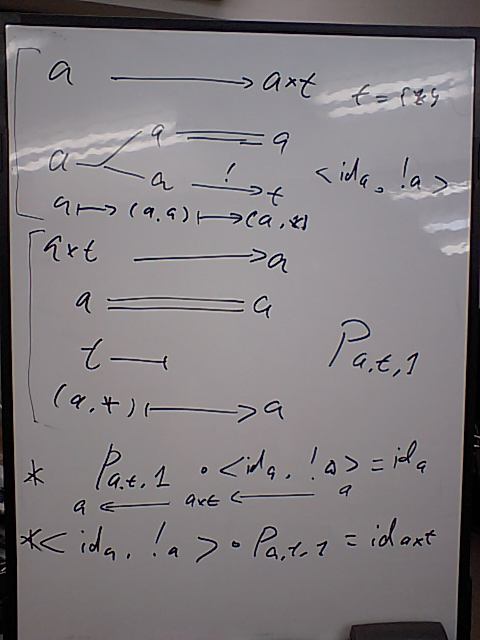 a → a×t t = {*}
a = a
a
a ! → t <id_a, !_a>
a ↦ (a, a) ↦ (a, *)
a×t → a
a = a
t ⊣
P_{a,t,1}
(a, *) ↦ a
* P_{a,t,1} ∘ <id_a, !_a> = id_a
a ← a×t ← a
* <id_a, !_a> ∘ P_{a,t,1} = id_{a×t}